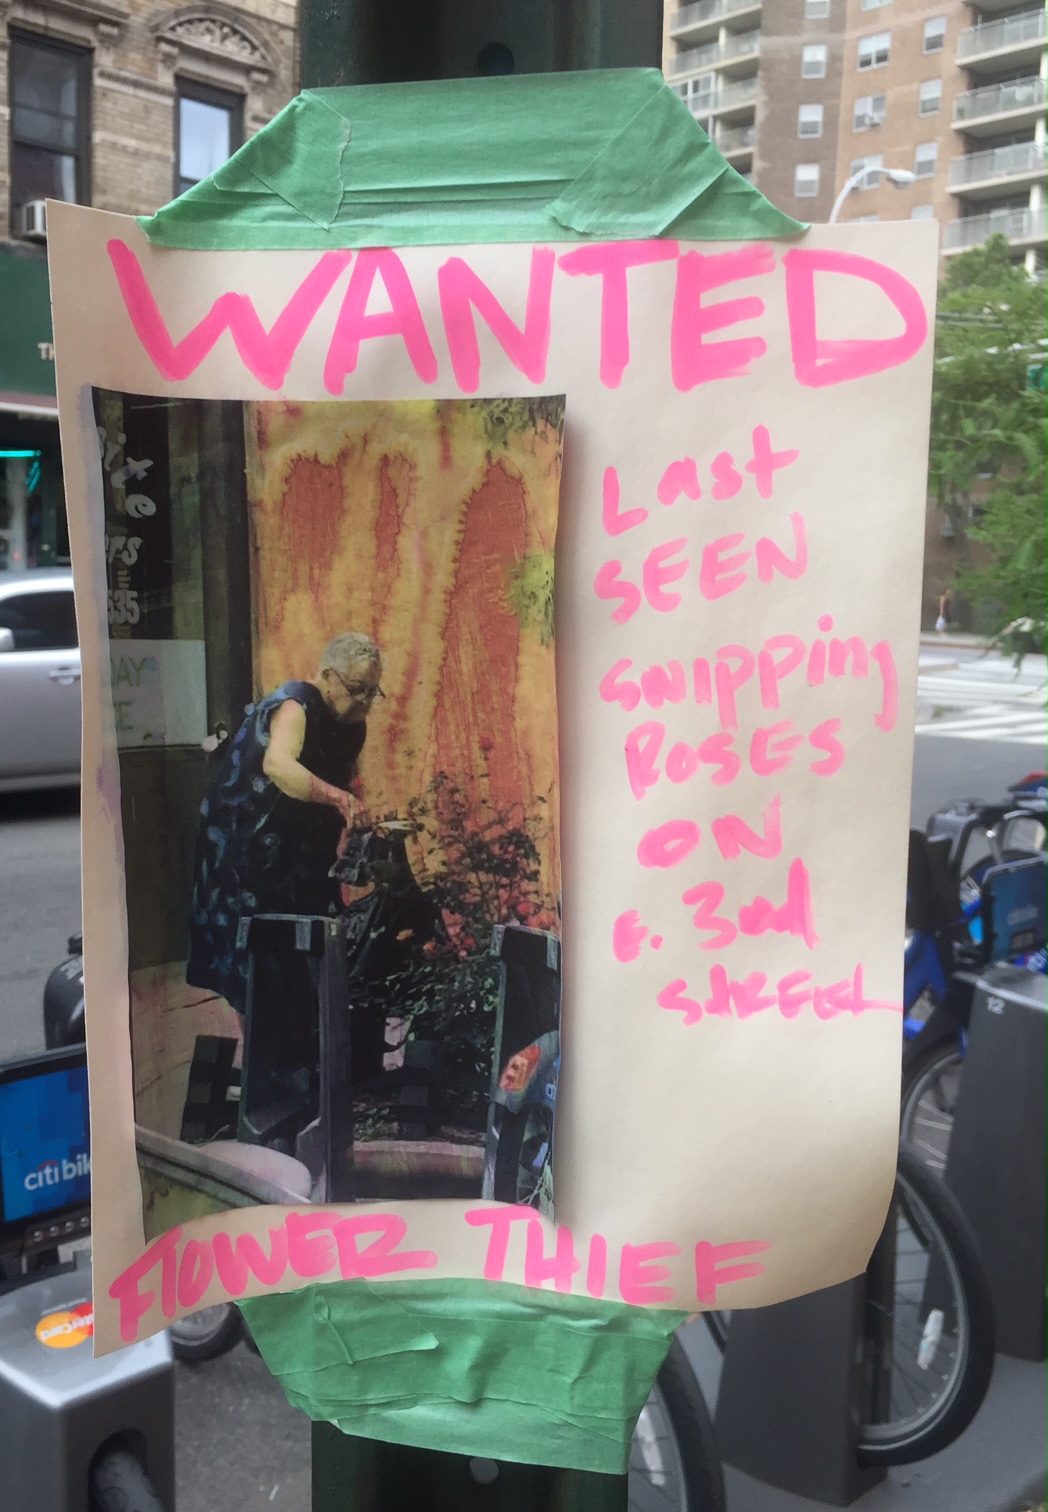 WANTED
Last
SEEN
SNIPPING
ROSES
ON
E. 3rd
STREET
FLOWER THIEF
citi bik
12